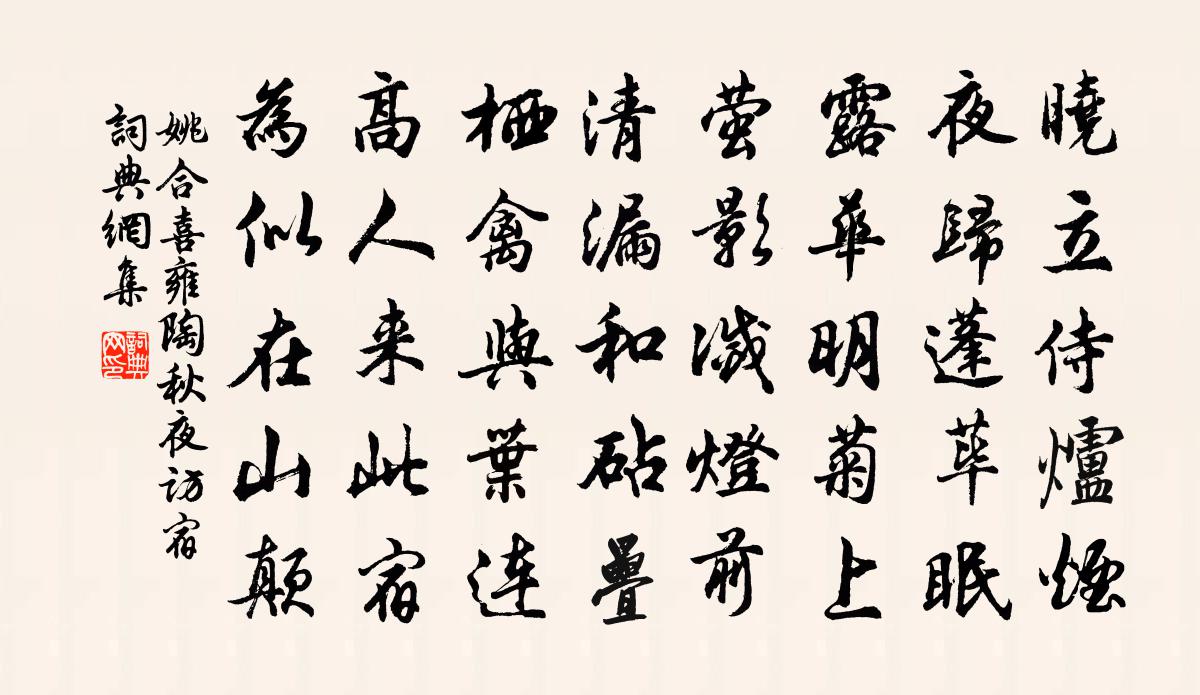 曉立侍爐煙
夜歸蓬蓽眠
露華明菊上
萤影滅燈前
清漏和砧疊
栖禽與葉连
高人来此宿
為似在山颠
姚合喜雍陶秋夜访宿
詞典網集
詞典网印